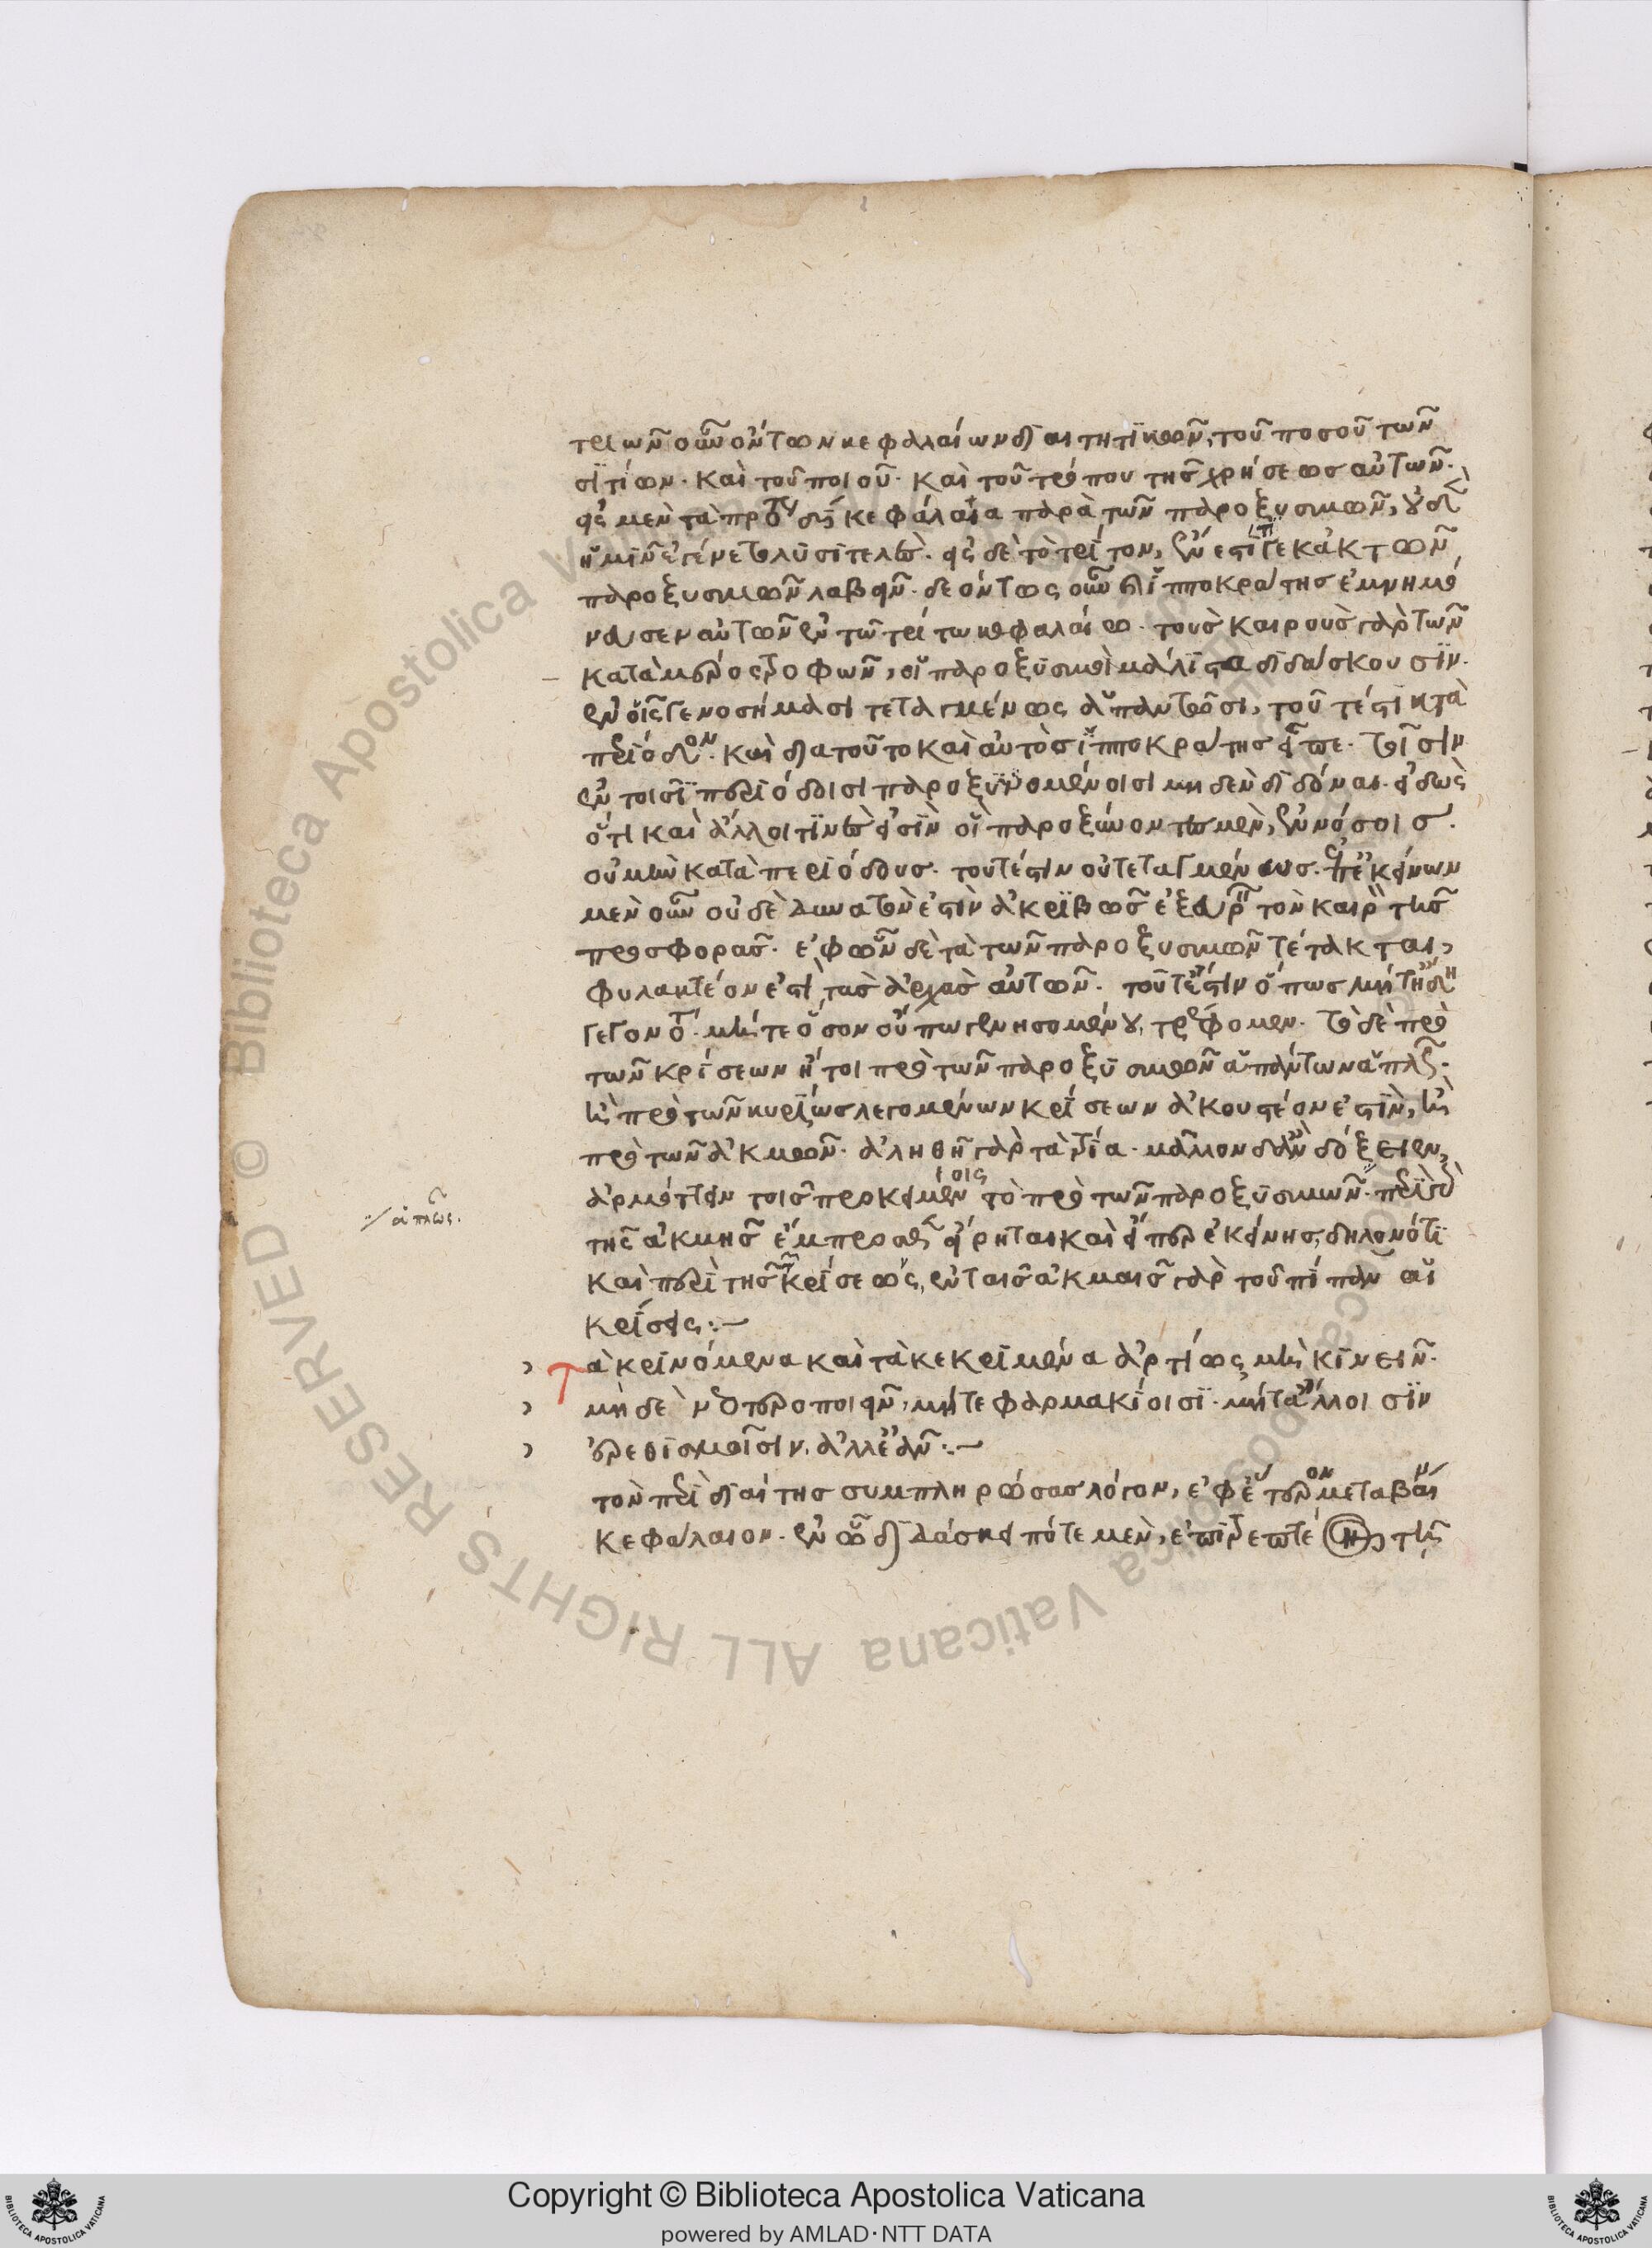 τριῶν οὖν ὄντων κεφαλαίων διαιτητικῶν, τοῦ ποσοῦ τῶν
σιτίων· καὶ τοῦ ποιοῦ· καὶ τοῦ τρόπου τῆς χρήσεως αὐτῶν·
εἰς μὲν τὰ πρότερα κεφάλαια παρὰ τῶν παροξυσμῶν, οὐδὲν
ἡμῖν ἐγένετο λυσιτελὲς. εἰς δὲ τὸ τρίτον, ἔνεστί τι κἀκ τῶν
παροξυσμῶν λαβεῖν. δεόντως οὖν ὁ ἱπποκράτης ἐμνημό
νευσεν αὐτῶν ἐν τῷ τρίτω κεφαλαίω. τοὺς καιροὺς γὰρ τῶν
κατὰ μέρος τροφῶν, οἱ παροξυσμοὶ μάλιστα διδάσκουσιν.
ἐν οἷς γε νοσήμασι τεταγμένως ἀπαντῶσι, τουτέστι κατὰ
περίοδον. καὶ διὰ τοῦτο καὶ αὐτὸς ἱπποκράτης εἶπε. τοῖσιν
ἐν τοῖσι περιόδοισι παροξυνομένοισι μηδὲν διδόναι. εἰδὼς
ὅτι καὶ ἄλλοι τινὲς εἰσὶν οἳ παροξύνονται μὲν, ἐν νόσοις.
οὐ μὴν κατὰ περιόδους. τουτέστιν οὐ τεταγμένους. ἐπ' ἐκείνων
μὲν οὖν οὐδὲ δυνατὸν ἐστὶν ἀκριβῶς ἐξευρεῖν τὸν καιρὸν τῆς
προσφορᾶς. ἐφ' ὧν δὲ τὰ τῶν παροξυσμῶν τέτακται,
φυλακτέον ἐστὶ τὰς ἀρχὰς αὐτῶν. τουτέστιν ὅπως μήτ' ἤδη
γεγονότος. μήτε ὅσον οὔπω γενησομένου, τρέφομεν. τὸ δὲ πρὸ
τῶν κρίσεων ἤτοι πρὸ τῶν παροξυσμῶν ἁπάντων ἁπλῶς.
ἢ πρὸ τῶν κυρίως λεγομένων κρίσεων ἀκουστέον ἐστὶν, ἢ
πρὸ τῶν ἀκμῶν. ἀληθῆ γὰρ τὰ τρία. μᾶλλον δ' ἂν δόξειεν,
ἁρμόττειν τοῖς προκειμένοις τὸ πρὸ τῶν παροξυσμῶν. περὶ γὰρ
τῆς ἀκμῆς ἔμπροσθεν εἴρηται καὶ εἴπερ ἐκείνης, δηλονότι
καὶ περὶ τῆς κρίσεως, ἐν ταῖς ἀκμαῖς γὰρ τοὐπίπαν αἱ
κρίσεις:~
Τὰ κρινόμενα καὶ τὰ κεκριμένα ἀρτίως μὴ κινεῖν.
μηδὲ νεωτεροποιεῖν, μήτε φαρμακίοισι. μήτ' ἄλλοισιν
ἐρεθισμοῖσιν, ἀλλ' ἐᾶν:~
τὸν περὶ διαίτης συμπληρώσας λόγον, ἐφ' ἕτερον μεταβαίνει
κεφάλαιον. ἐν ᾧ διδάσκει πότε μὲν, ἐπιτρεπτέ τῆς
ἁπλῶς.
Copyright © Biblioteca Apostolica Vaticana
powered by AMLAD·NTT DATA